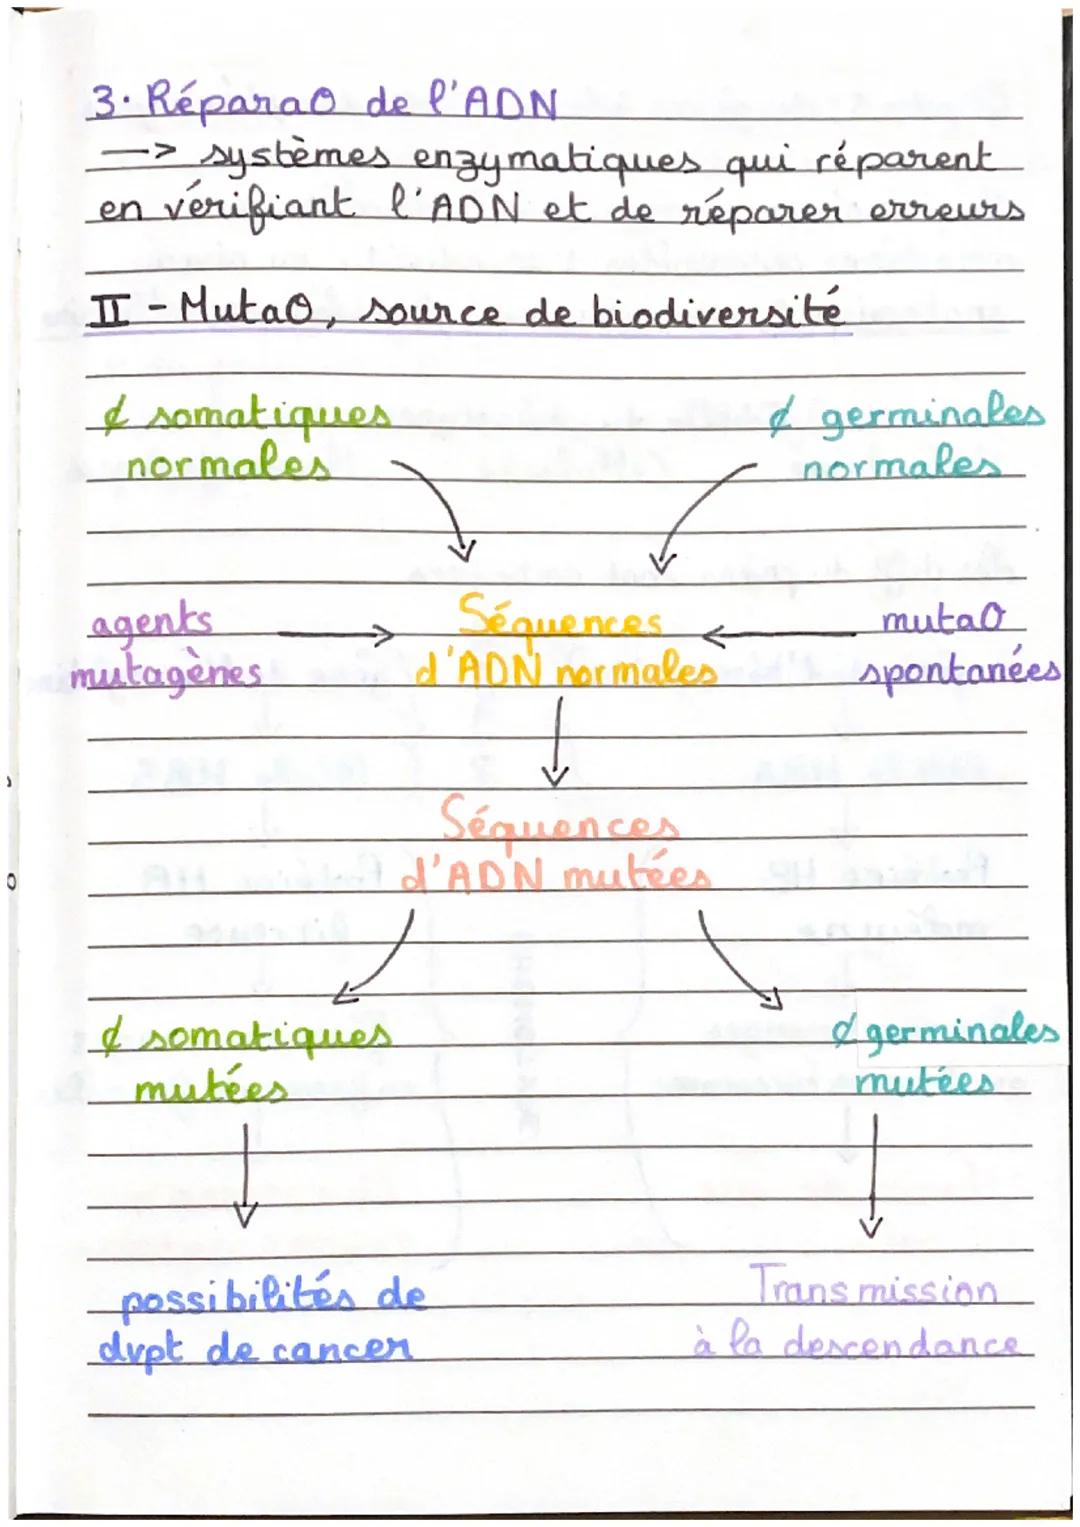 3. Répara⊙ de l'ADN
—> systèmes enzymatiques qui réparent
en vérifiant l'ADN et de réparer erreurs
II - Muta⊙, source de biodiversité
¢ somatiques
normales
¢ germinales
normales
agents
mutagènes
Séquences
d'ADN normales
muta⊙
spontanées
Séquences
d'ADN mutées
¢ somatiques
mutées
¢ germinales
mutées
possibilités de
dvpt de cancer
Transmission
à la descendance